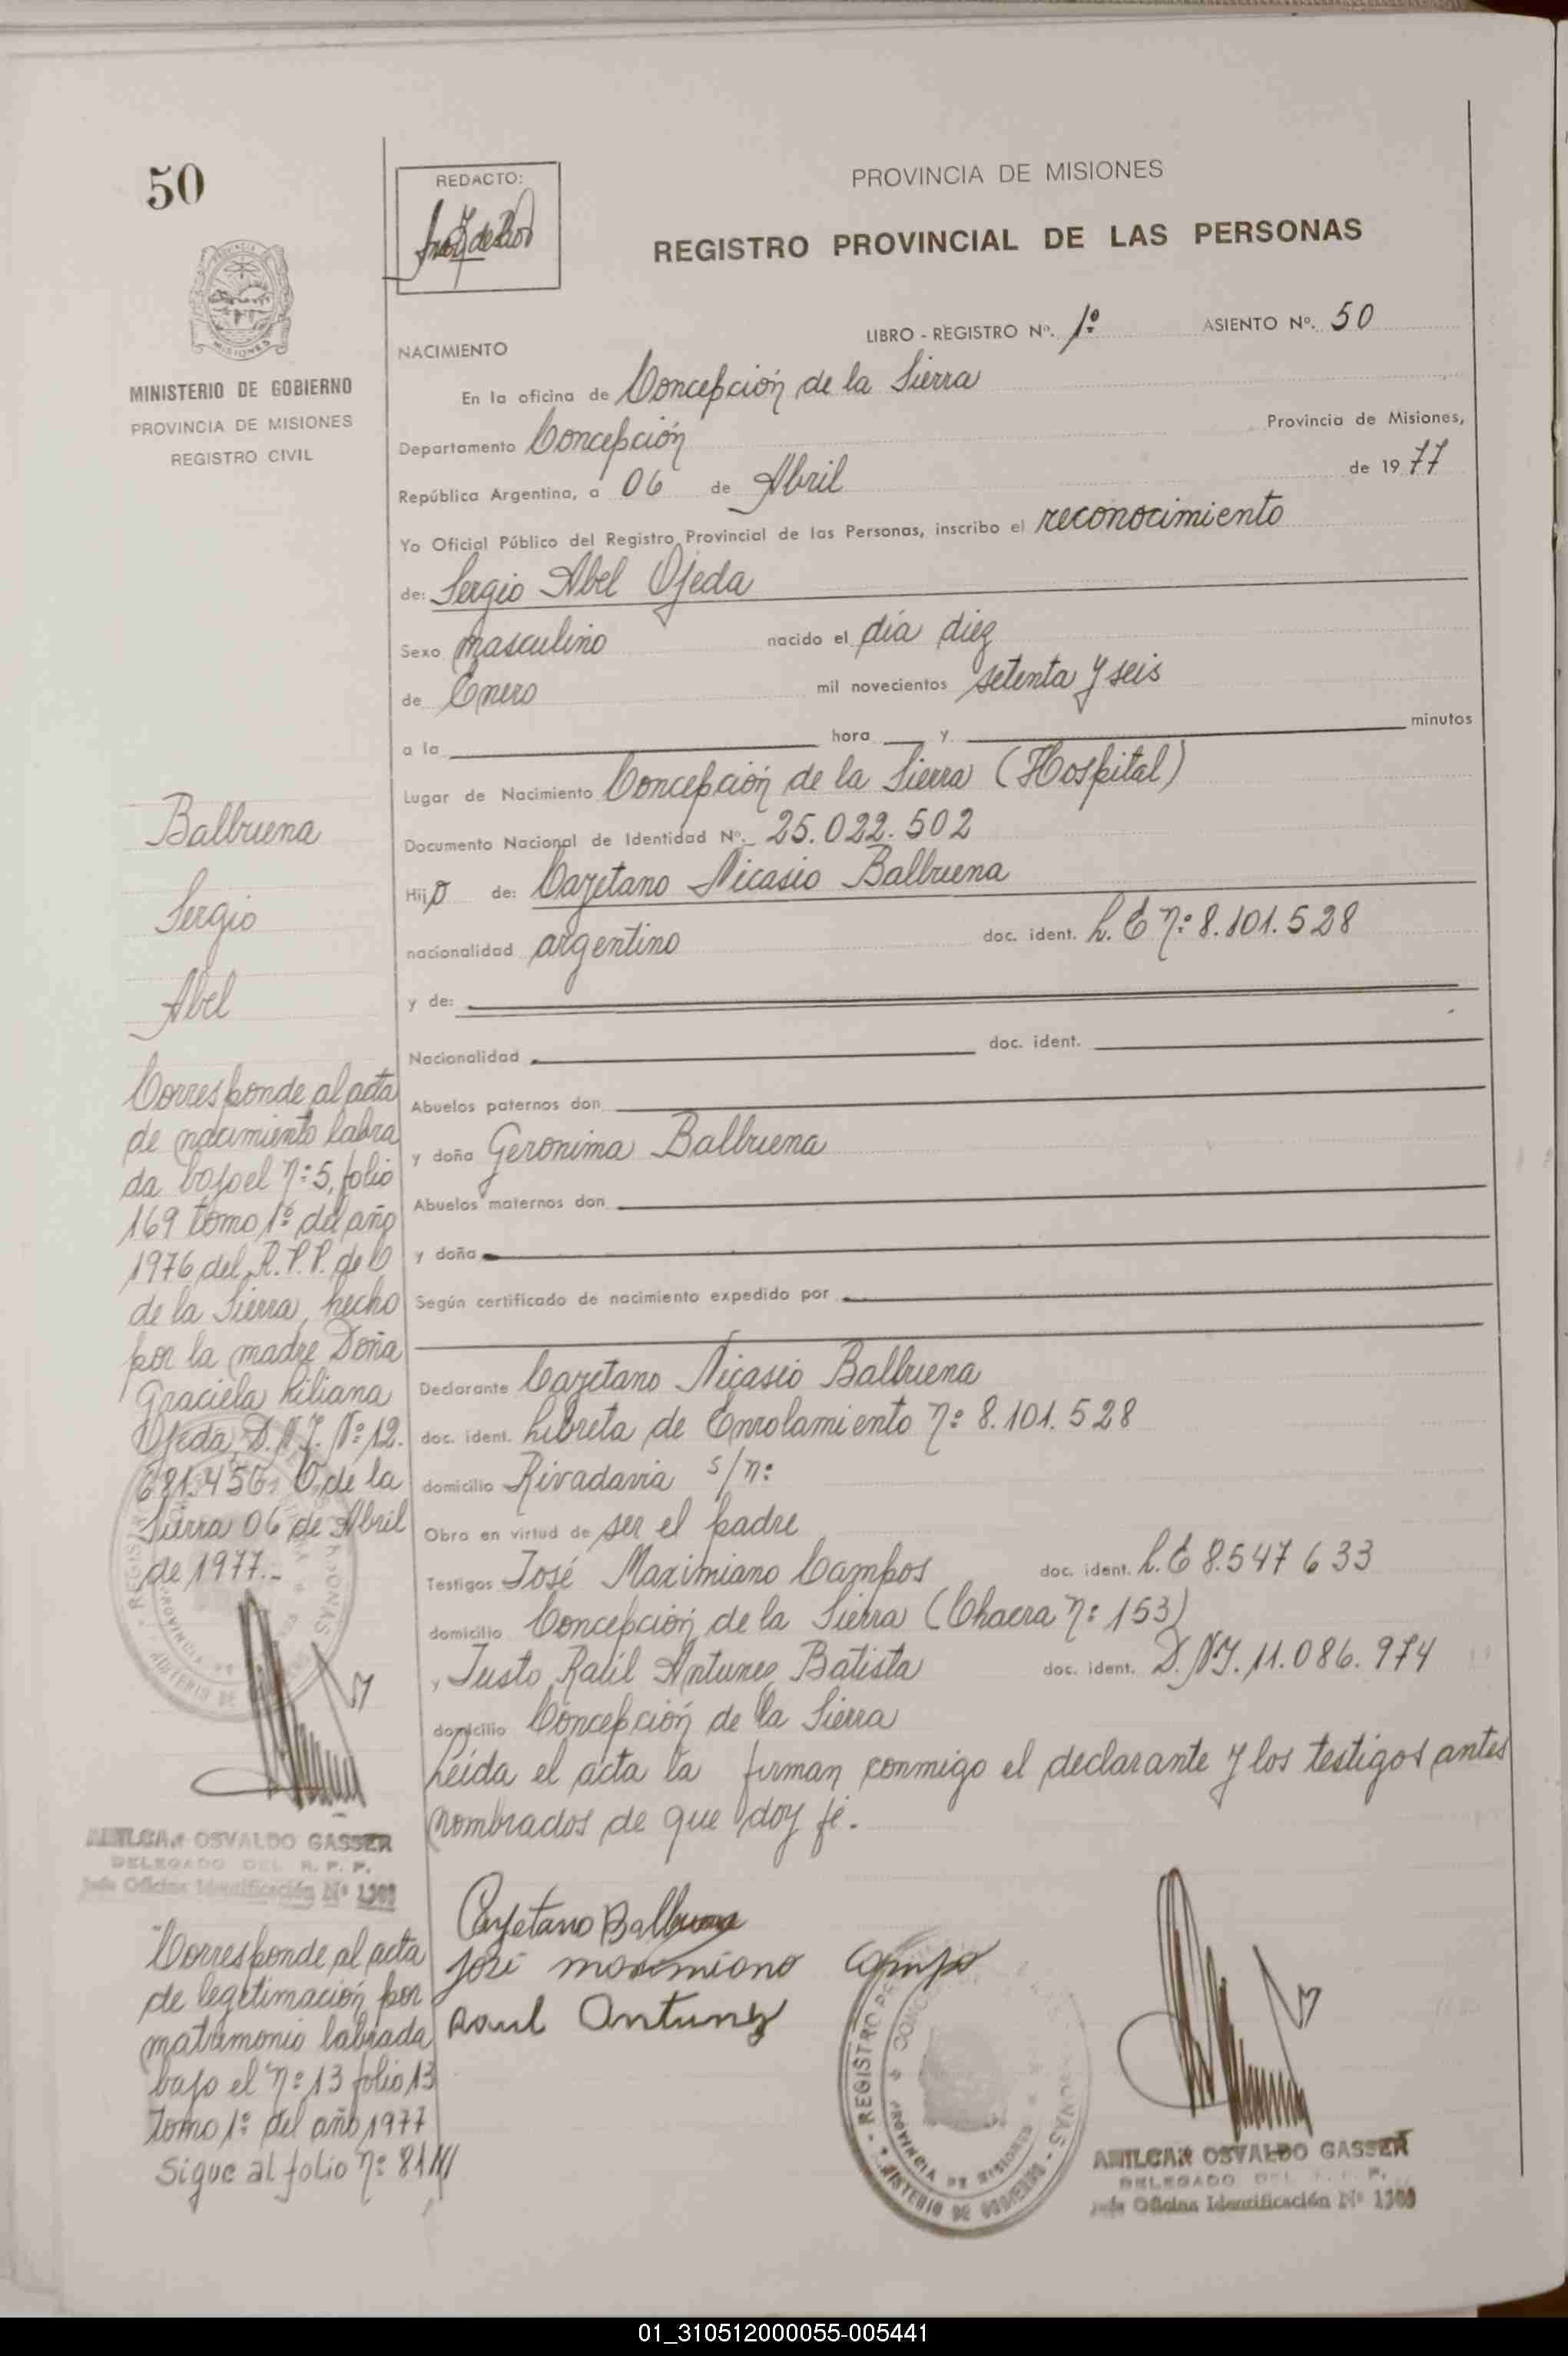 50
REDACTO:
PROVINCIA DE MISIONES
REGISTRO PROVINCIAL DE LAS PERSONAS
MINISTERIO DE GOBIERNO
PROVINCIA DE MISIONES
REGISTRO CIVIL
LIBRO - REGISTRO Nº. 1º ASIENTO Nº. 50
NACIMIENTO
En la oficina de Concepción de la Sierra
Departamento Concepción Provincia de Misiones,
República Argentina, a 06 de Abril de 1977
Yo Oficial Público del Registro Provincial de las Personas, inscribo el reconocimiento
de: Sergio Abel Ojeda
Sexo masculino nacido el día diez
de Enero mil novecientos setenta y seis
a la hora y minutos
Lugar de Nacimiento Concepción de la Sierra (Hospital)
Documento Nacional de Identidad Nº. 25.022.502
Hijo de: Cayetano Nicasio Balbuena
nacionalidad argentino doc. ident. L.E nº 8.101.528
y de:
Nacionalidad doc. ident.
Abuelos paternos don
y doña Geronima Balbuena
Abuelos maternos don
y doña
Según certificado de nacimiento expedido por
Declarante Cayetano Nicasio Balbuena
doc. ident. Libreta de Enrolamiento nº 8.101.528
domicilio Rivadavia s/nº
Obra en virtud de ser el padre
Testigos José Maximiano Campos doc. ident. L.E 8.547633
domicilio Concepción de la Sierra (Chacra nº 153)
y Justo Raúl Antunez Batista doc. ident. D.N.I. 11.086.974
domicilio Concepción de la Sierra
Leída el acta la firman conmigo el declarante y los testigos antes
nombrados de que doy fé.
Cayetano Balbuena
José maximiano Campo
Raul Antunez
Balbuena
Sergio
Abel
Corresponde al acta
de nacimiento labra
da bajo el nº 5, folio
169 tomo 1º del año
1976 del R.P.P. de C
de la Sierra, hecho
por la madre Doña
Graciela Liliana
Ojeda, D.N.I. Nº 12.
681.456. C. de la
Sierra 06 de Abril
de 1977.-
AMILCAR OSVALDO GASSER
DELEGADO DEL R. P. P.
Jefe Oficina Identificación Nº 1309
Corresponde al acta
de legitimación por
matrimonio labrada
bajo el nº 13 folio 13
Tomo 1º del año 1977
Sigue al folio nº 81
REGISTRO
PROVINCIA DE MISIONES
MINISTERIO DE GOBIERNO
AMILCAR OSVALDO GASSER
DELEGADO DEL R. P. P.
Jefe Oficina Identificación Nº 1309
01_310512000055-005441